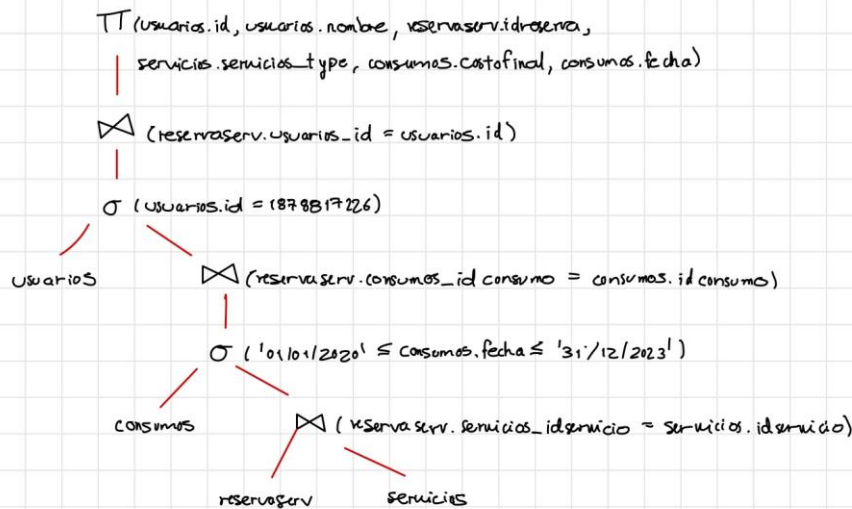 π (usuarios.id, usuarios.nombre, reservaserv.idreserva,
servicios.servicios_type, consumos.costofinal, consumos.fecha)
⋈ (reservaserv.usuarios_id = usuarios.id)
σ (usuarios.id = 1878817226)
usuarios
⋈ (reservaserv.consumos_idconsumo = consumos.idconsumo)
σ ('01/01/2020' ≤ consumos.fecha ≤ '31/12/2023')
consumos
⋈ (reservaserv.servicios_idservicio = servicios.idservicio)
reservaserv
servicios